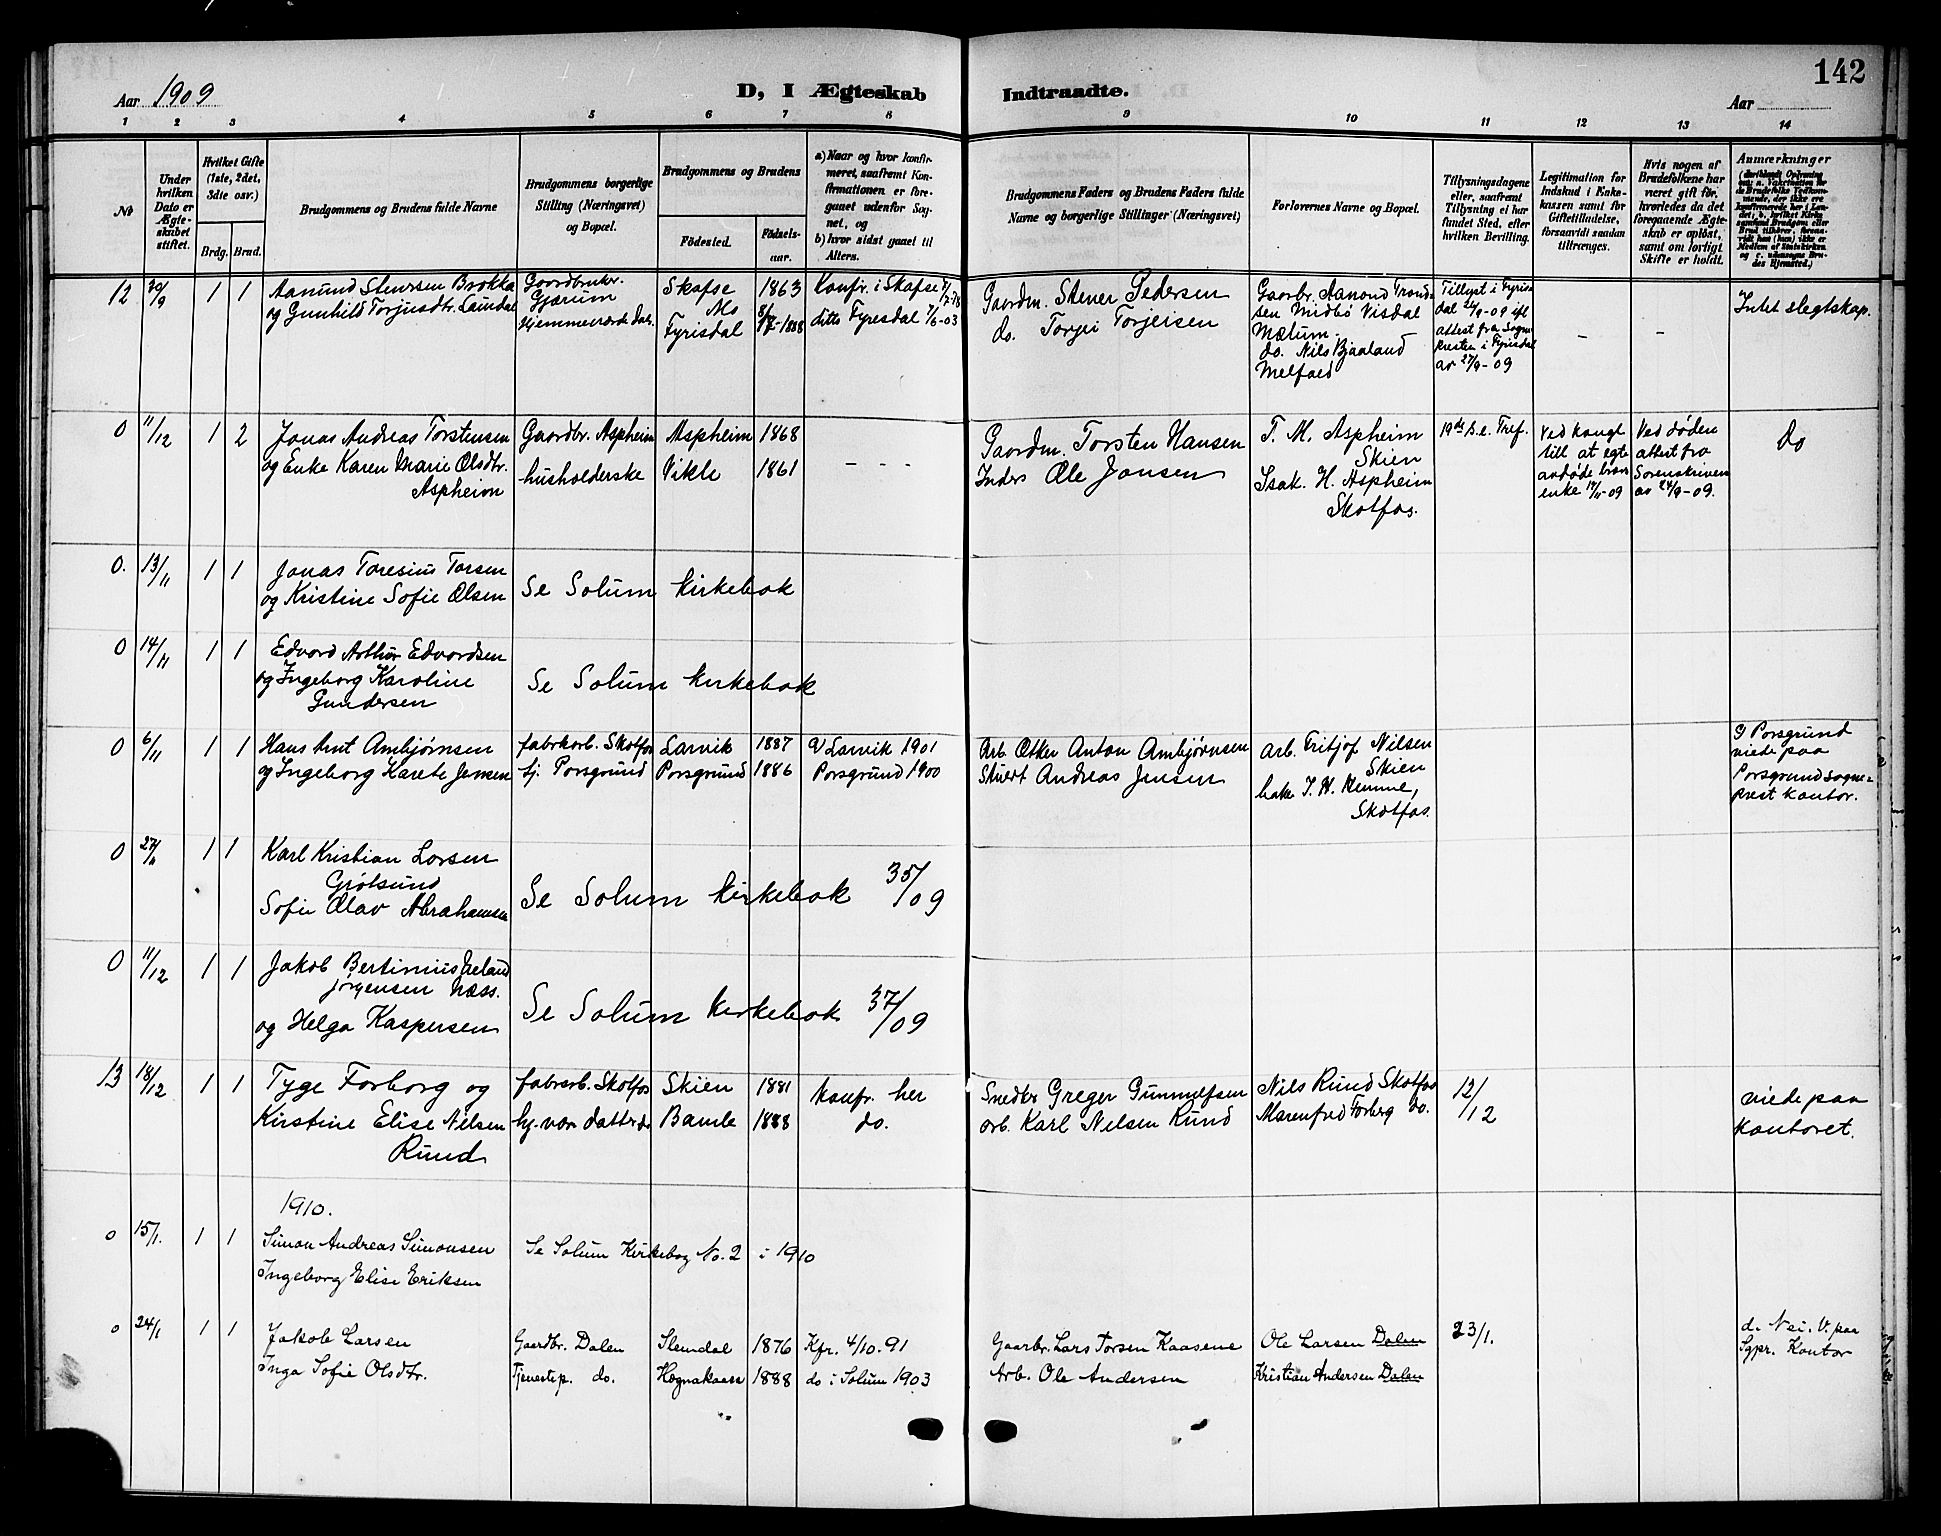 142
Aar 1909
D, I Ægteskab
Indtraadte.
Aar
1 2 3 4 5 6 7 8 9 10 11 12 13 14
No
Under hvilken Dato er Ægteskabet stiftet.
Hvilket Gifte (1ste, 2det, 3die osv.)
Brdg. Brud.
Brudgommens og Brudens fulde Navne
Brudgommens borgerlige Stilling (Næringsvei) og Bopæl.
Brudgommens og Brudens
Födested.
Födselsaar.
a) Naar og hvor konfirmeret, saafremt Konfirmationen er foregaaet udenfor Sognet, og
b) hvor sidst gaaet til Alters.
Brudgommens Faders og Brudens Faders fulde Navne og borgerlige Stillinger (Næringsvei)
Forlovernes Navne og Bopæl.
Tillysningsdagene eller, saafremt Tillysning ei har fundet Sted, efter hvilken Bevilling.
Legitimation for Indskud i Enkekassen samt for Giftetilladelse, forsaavidt saadan tiltrænges.
Hvis nogen af Brudefolkene har været gift för, hvorledes da det foregaaende Ægteskab er oplöst, samt om lovligt Skifte er holdt.
Anmærkninger
12 30/9 1 1
og Gunhild Torjusdtr. Laundal
Gjærum
Skafse 1863
Mo
Fyrisdal 1888
Konfr. i Skafse
ditto Fyresdal 7/6-03
Gaardm. Stener Pedersen
do. Torjei Torjeisen
Gaarbr. Aanond
Midbø Visdal
do. Nils Bjaaland
Tillyst i Fyrisdal
attest fra Sogne
presten i Fyrisdal
av 27/9-09
- -
Intet slegtskap.
0 11/12 1 2
Jonas Andreas Torstensen
og Enke Karen Marie Olsdtr.
Aspheim
Gaardbr. Aspheim
husholderske
Aspheim 1868
Vikle 1861
- - -
Gaardm. Torsten Hansen
Inders Ole Jansen
T. M. Aspheim
Skien
Isak. H. Aspheim
Skotfos.
Ved døden
attest fra
Sorenskriveren
av 24/9-09.
Do
0. 13/11 1 1
Jonas Toresius Torsen
og Kristine Sofie Olsen
Se Solum kirkebok
0 14/11 1 1
Edvard Arthur Edvardsen
og Ingeborg Karoline
Gundersen
Se Solum kirkebok
0 6/11 1 1
Hans Arnt Ambjørnsen
og Ingeborg Karete Jensen
fabrkarb. Skotfos
tj. Porsgrund
Larvik 1887
Porsgrund 1886
a/ Larvik 1901
Porsgrund 1900
Arb. Otker Anton Ambjørnsen
Andreas Jensen
Arb. Fritjof Nilsen
Skien
Skotfos.
I Porsgrund
viede paa
Porsgrund sogne=
prest kontor.
0 27/11 1 1
Karl Kristian Larsen
Grøtsund
Sofie Olav Abrahamsen
Se Solum kirkebok 35/09
0 11/12 1 1
Jakob Bertinius
Jørgensen Næss.
og Helga Kaspersen
Se Solum kirkebok 37/09
13 18/12 1 1
Tyge Forborg og
Kirstine Elise Nilsen
Rund
fabrarb. Skotfos
hj. vær. datter do
Skien 1881
Bamle 1888
Konfr. her
do.
Smedter Greger Gunnulfsen
arb. Karl Nilsen Rund
Nils Rund Skotfos
Forberg do.
12/12
viede paa
kontoret.
1910.
0 15/1. 1 1
Simon Andreas Simonsen
Ingeborg Elise Eriksen
Se Solum Kirkebog No. 2 i 1910
0 24/1 1 1
Jakob Larsen
Inga Sofie Olsdtr.
Gaardbr. Dalen
Tjenestep. do.
Slemdal 1876
Hægnakaase 1888
Kfr. 4/10. 91
do i Solum 1903
Gaarbr. Lars Torsen Kaasene
Arb. Ole Andersen
Ole Larsen Dalen
Kristian Andersen Dalen
23/1.
d. Nei. V. paa
Sgpr. Kontor